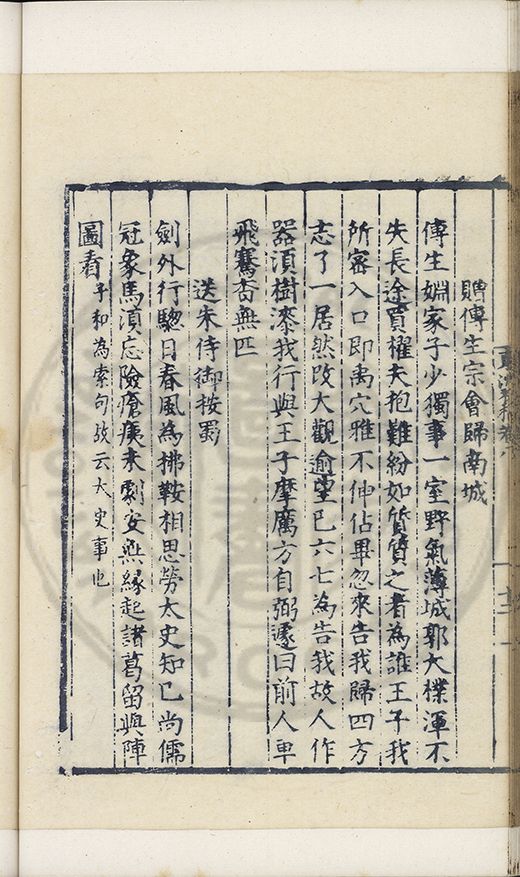 贈傅生宗會歸南城
傅生婣家子少獨事一室野氣薄城郭大樸渾不
失長途買櫂夫抱難紛如質質之者為誰王子我
所審入口即禹穴雅不伸佔畢忽來告我歸四方
志了一居然改大觀逾望已六七為告我故人作
器須樹漆我行與王子摩厲方自弼遽曰前人車
飛騫杳無匹
送朱侍御按蜀
劍外行驄日春風為拂鞍相思勞太史知已尚儒
冠象馬須忘險瘡痍未劇安無緣起諸葛留與陣
圖看子和為索句故云太史事也